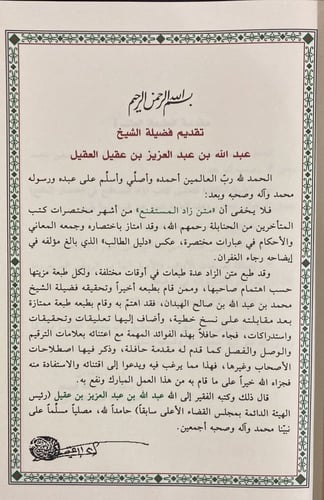 بسم الله الرحمن الرحيم
تقديم فضيلة الشيخ
عبد الله بن عبد العزيز بن عقيل العقيل
الحمد لله ربّ العالمين أحمده وأصلّي وأسلّم على عبده ورسوله
محمد وآله وصحبه وبعد:
فلا يخفى أن «متن زاد المستقنع» من أشهر مختصرات كتب
المتأخرين من الحنابلة رحمهم الله، وقد امتاز باختصاره وجمعه المعاني
والأحكام في عبارات مختصرة، عكس «دليل الطالب» الذي بالغ مؤلفه في
إيضاحه رجاء الغفران.
وقد طبع متن الزاد عدة طبعات في أوقات مختلفة، ولكل طبعة مزيتها
حسب اهتمام صاحبها، وممن قام بطبعه أخيراً وتحقيقه فضيلة الشيخ
محمد بن عبد الله بن صالح الهبدان، فقد اهتمّ به وقام بطبعه طبعة ممتازة
بعد مقابلته على نسخ خطية، وأضاف إليها تعليقات وتحقيقات
واستدراكات، فجاء حافلاً بهذه الفوائد المهمة مع اعتنائه بعلامات الترقيم
والوصل والفصل كما قدم له مقدمة حافلة، وذكر فيها اصطلاحات
الأصحاب وغيرها، فهذا مما يرغب فيه ويدعوا إلى اقتنائه والاستفادة منه
فجزاه الله خيراً على ما قام به من هذا العمل المبارك ونفع به.
قال ذلك وكتبه الفقير إلى الله عبد الله بن عبد العزيز بن عقيل (رئيس
الهيئة الدائمة بمجلس القضاء الأعلى سابقاً) حامداً لله، مصلياً مسلّماً على
نبيّنا محمد وآله وصحبه أجمعين.